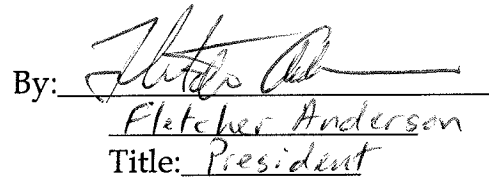 By:
Fletcher Anderson
Title: President